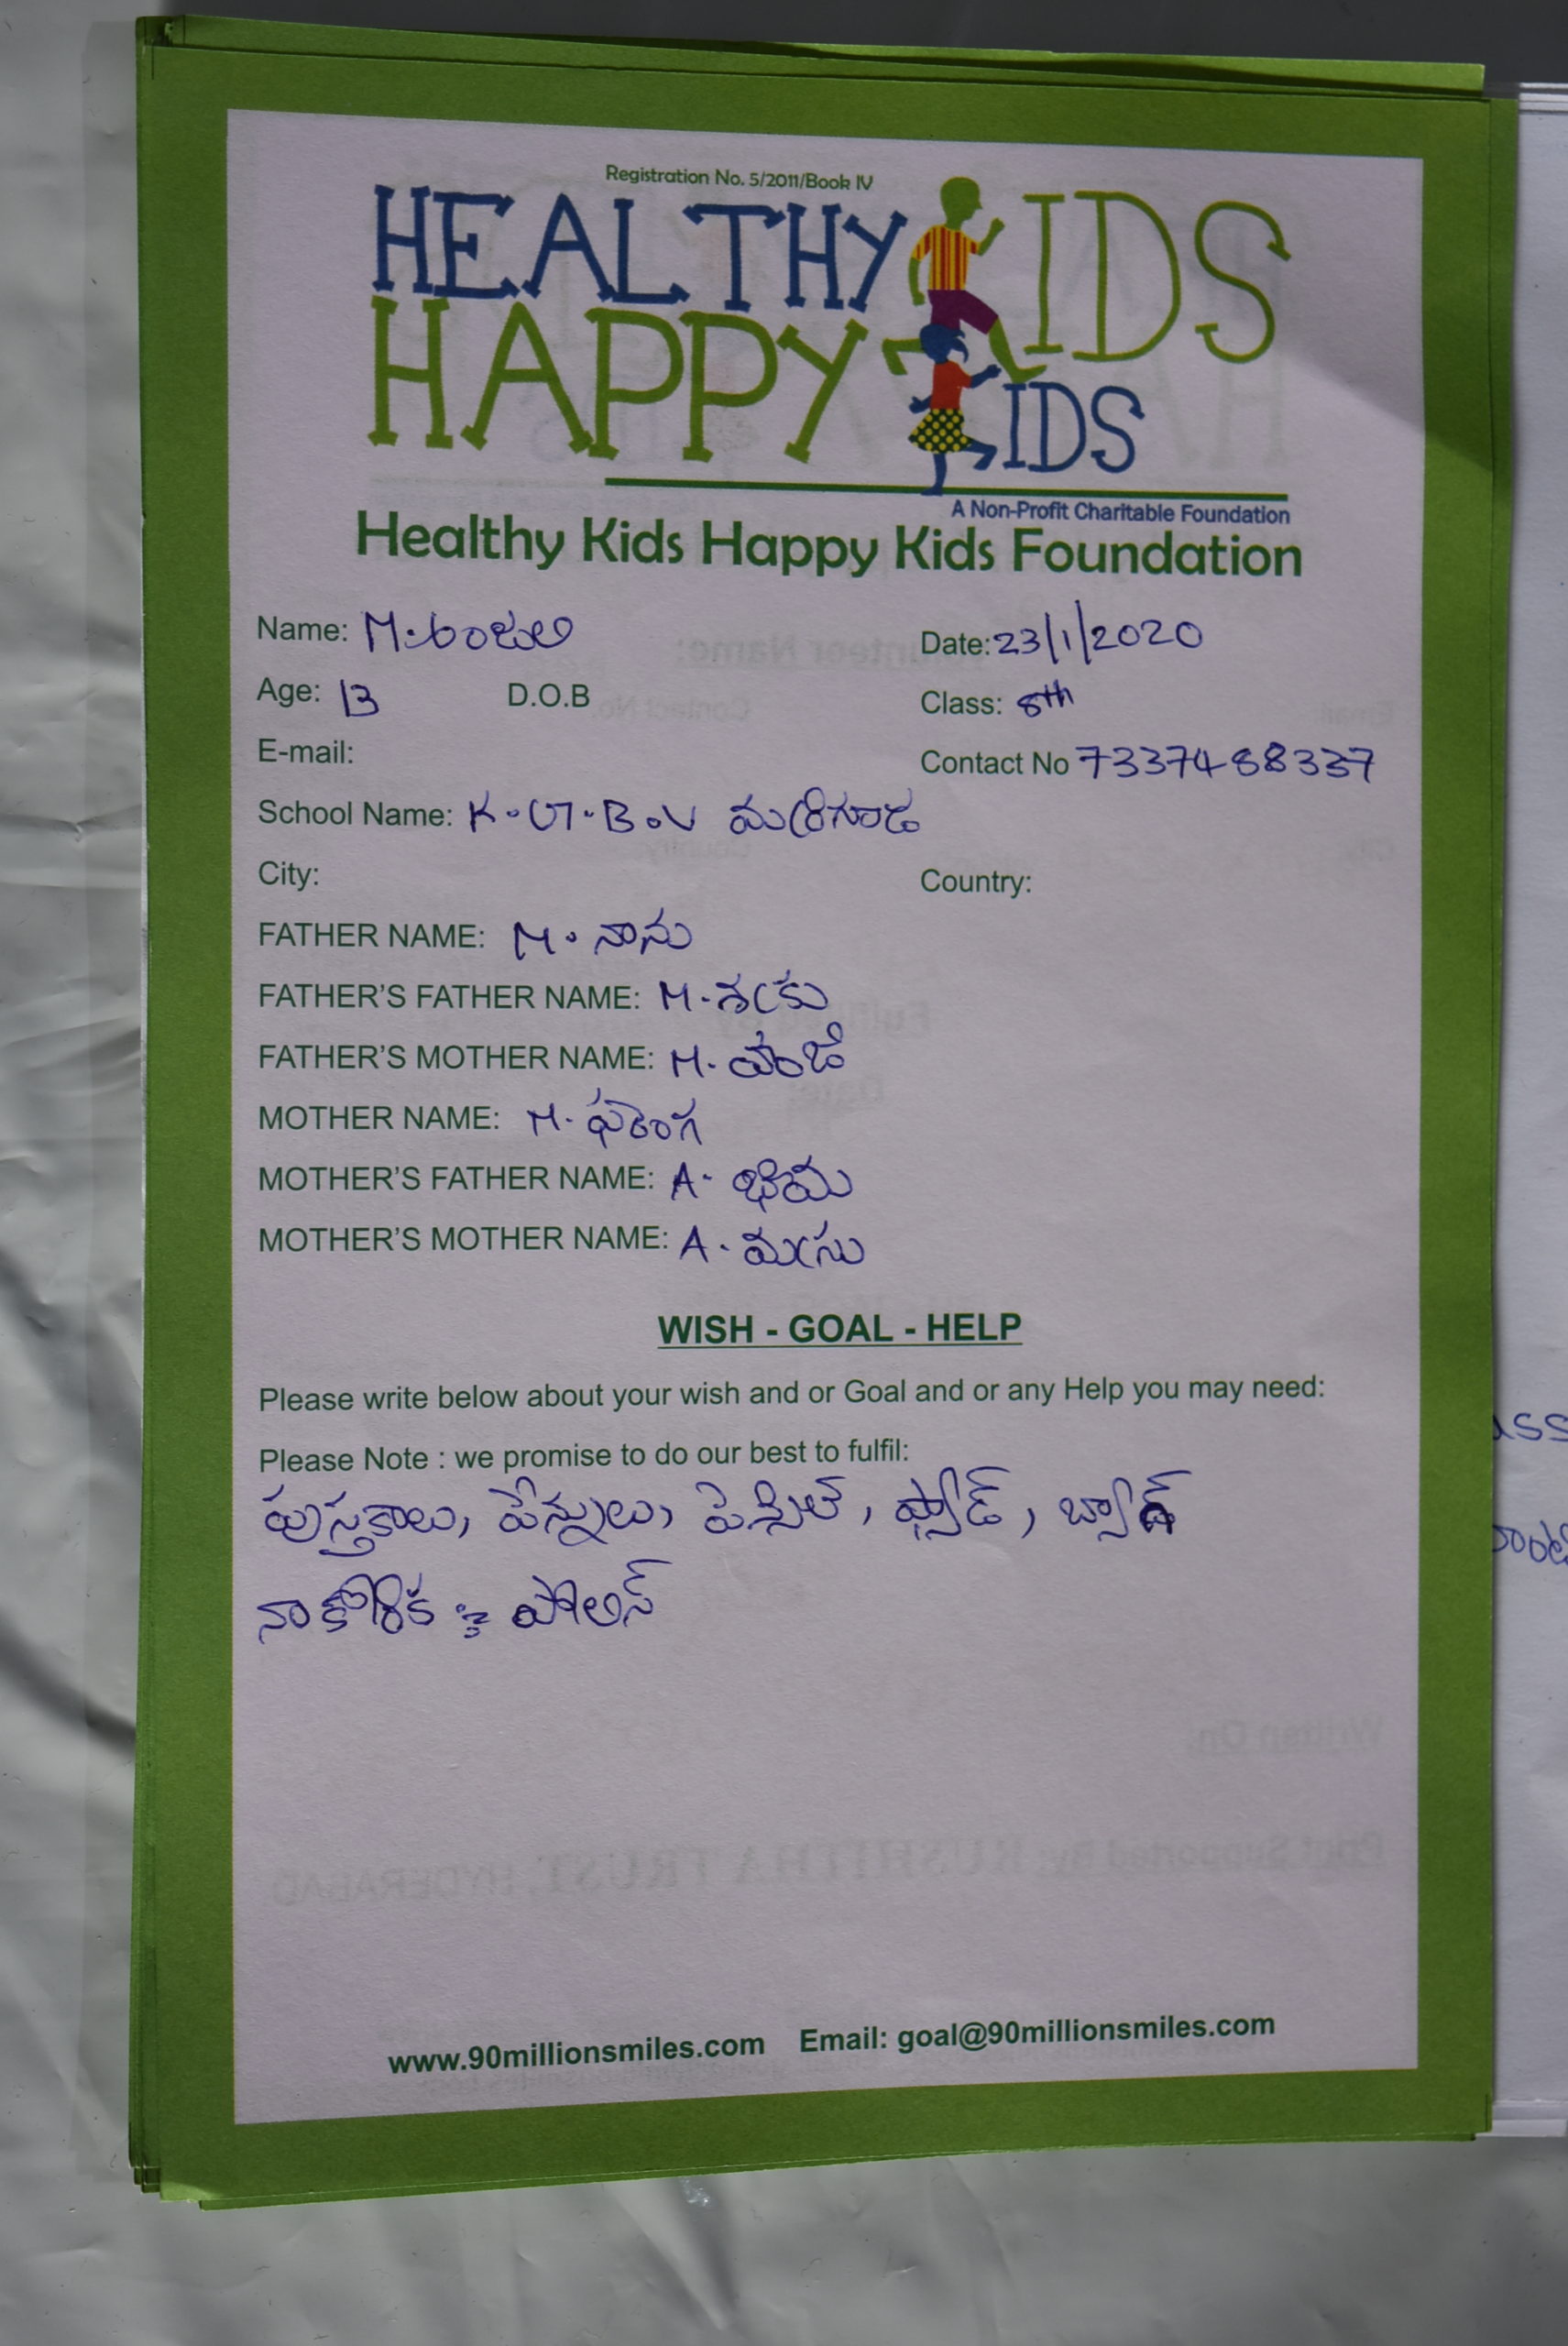 Registration No. 5/2011/Book IV
HEALTHY KIDS
HAPPY KIDS
A Non-Profit Charitable Foundation
Healthy Kids Happy Kids Foundation
Name: M. అంజలి Date: 23/1/2020
Age: 13 D.O.B Class: 8th
E-mail: Contact No 7337488337
School Name: K.G.B.V మర్రిగూడ
City: Country:
FATHER NAME: M. నాను
FATHER'S FATHER NAME: M.
FATHER'S MOTHER NAME: M.
MOTHER NAME: M.
MOTHER'S FATHER NAME: A. భీమ
MOTHER'S MOTHER NAME: A.
WISH - GOAL - HELP
Please write below about your wish and or Goal and or any Help you may need:
Please Note : we promise to do our best to fulfil:
పుస్తకాలు, పేన్నులు, పెన్సిల్, ప్యాడ్, బ్యాగ్
నా కోరిక : పోలిస్
www.90millionsmiles.com Email: goal@90millionsmiles.com